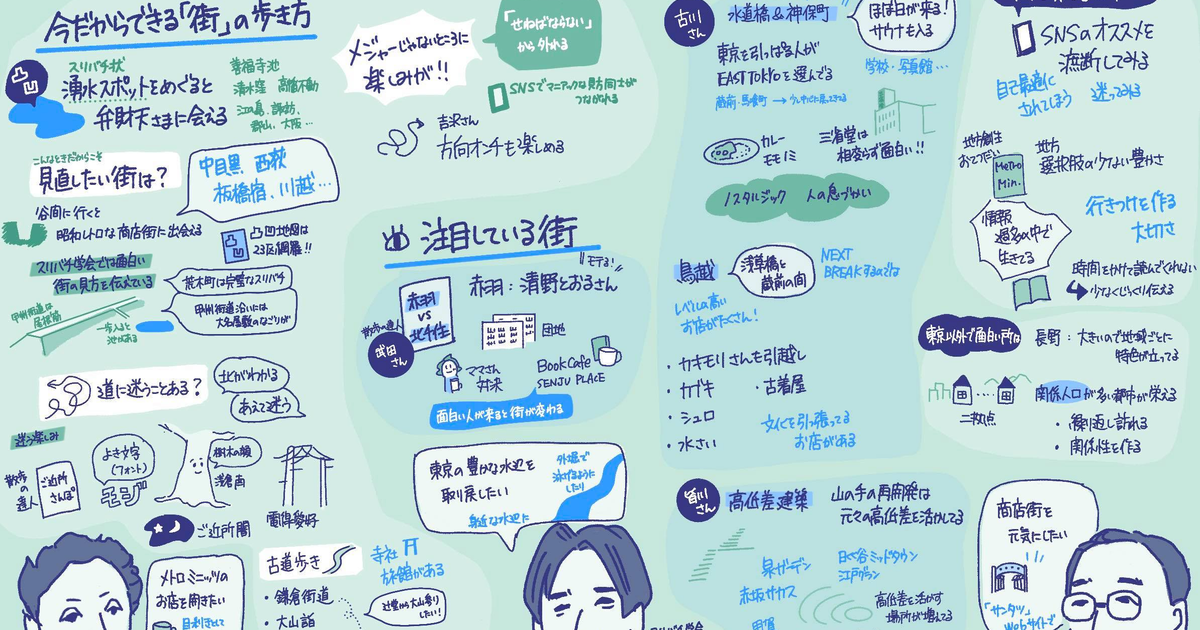 今だからできる「街」の歩き方
凸凹
スリバチ状
湧水スポットをめぐると
弁財天さまに会える
善福寺池
清水窪 高幡不動
江の島、諏訪、
郡山、大阪…
こんなときだからこそ
見直したい街は?
中目黒 西荻
板橋宿、川越…
谷間に行くと
昭和レトロな商店街に出会える
凸凹地図は
23区網羅!!
スリバチ学会では面白い
街の見方を伝えている
荒木町は完璧なスリバチ
甲州街道は
尾根筋
一歩入ると
池がある
甲州街道沿いには
大名屋敷のなごりが
道に迷うことある?
北がわかる
あえて迷う
迷う楽しみ
散歩の達人
ご近所さんぽ
よき文字
(フォント)
モジ
樹木の顔
浅倉南
電信愛好
ご近所闇
メトロミニッツの
お店を開きたい
目利きとして
古道歩き
・鎌倉街道
・大山詣
寺社
旅館がある
辻堂から大山参り
したい!
メジャーじゃないところに
楽しみが!!
「せねばならない」
から外れる
SNSでマニアックな財力同士が
つながれる
吉沢さん
方向オンチも楽しめる
注目している街
モテる!
赤羽
vs
北千住
散歩の達人
武田さん
赤羽:清野とおるさん
団地
ママさん
女将
Book Cafe
SENJU PLACE
面白い人が来ると街が変わる
東京の豊かな水辺を
取り戻したい
外堀で
泳げるように
したり
身近な水辺に
古川さん
水道橋&神保町
ほぼ日が来る!
サウナも入る
学校・写真館…
東京を引っぱる人が
EAST TOKYOを選んでる
蔵前・馬喰町
カレー
モモノミ
三省堂は
相変らず面白い!!
ノスタルジック 人の息づかい
鳥越
浅草橋と
蔵前の間
NEXT
BREAKするのでは
レベルの高い
お店がたくさん!
・カキモリさんも引越し
・カブキ ・古着屋
・シュロ
・水さい
文化を引っ張ってる
お店がある
皆川さん
高低差建築
山の手の再開発は
元々の高低差を活かしてる
泉ガーデン
赤坂サカス
日比谷ミッドタウン
江戸グラン
高低差を活かす
場所が増えてる
SNSのオススメを
遮断してみる
自己最適に
されてしまう
迷ってみる
地方創生
おてつだい
Metro
Min.
地方
選択肢の少ない豊かさ
情報
過多の中で
生きてる
行きつけを作る
大切さ
時間をかけて読んでくれない
少なくじっくり伝える
東京以外で面白い所は
長野:大きいので地域ごとに
特色が立ってる
二拠点
関係人口が多い都市が栄える
・繰り返し訪れる
・関係性を作る
商店街を
元気にしたい
「サンタツ」
Webサイトで